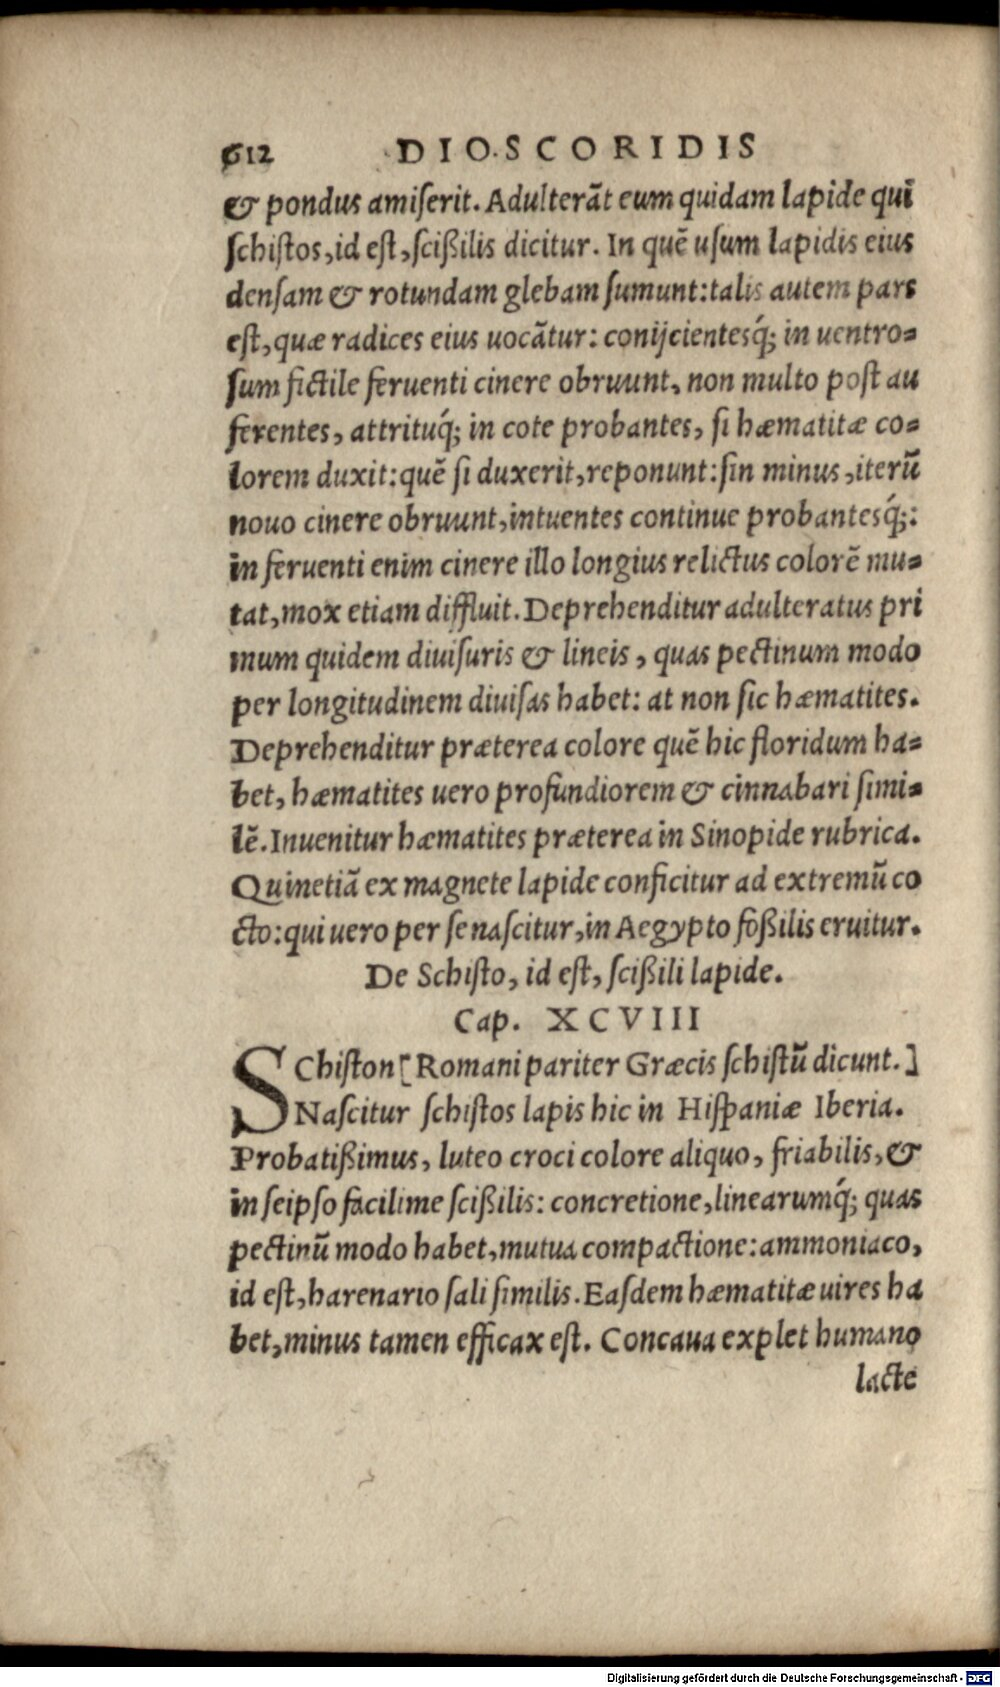 612 DIOSCORIDIS
& pondus amiſerit. Adulterãt eum quidam lapide qui
ſchiſtos, id eſt, ſcißilis dicitur. In quẽ uſum lapidis eius
denſam & rotundam glebam ſumunt: talis autem pars
eſt, quæ radices eius uocãtur: conijcientesq́; in uentro=
ſum fictile feruenti cinere obruunt, non multo poſt au
ferentes, attrituq́; in cote probantes, ſi hæmatitæ co=
lorem duxit: quẽ ſi duxerit, reponunt: ſin minus, iterũ
nouo cinere obruunt, intuentes continue probantesq́;:
in feruenti enim cinere illo longius relictus colorẽ mu=
tat, mox etiam diffluit. Deprehenditur adulteratus pri
mum quidem diuiſuris & lineis, quas pectinum modo
per longitudinem diuiſas habet: at non ſic hæmatites.
Deprehenditur præterea colore quẽ hic floridum ha=
bet, hæmatites uero profundiorem & cinnabari ſimi=
lẽ. Inuenitur hæmatites præterea in Sinopide rubrica.
Quinetiã ex magnete lapide conficitur ad extremũ co
cto: qui uero per ſe naſcitur, in Aegypto foßilis eruitur.
De Schiſto, id eſt, ſcißili lapide.
Cap. XCVIII
SChiſton [Romani pariter Græcis ſchiſtũ dicunt.]
Naſcitur ſchiſtos lapis hic in Hiſpaniæ Iberia.
Probatißimus, luteo croci colore aliquo, friabilis, &
in ſeipſo facilime ſcißilis: concretione, linearumq́; quas
pectinũ modo habet, mutua compactione: ammoniaco,
id eſt, harenario ſali ſimilis. Eaſdem hæmatitæ uires ha
bet, minus tamen efficax eſt. Concaua explet humano
lacte
Digitalisierung gefördert durch die Deutsche Forschungsgemeinschaft - DFG